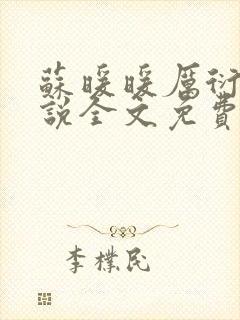 蘇暖暖厲衍
說全文免費
李樸民